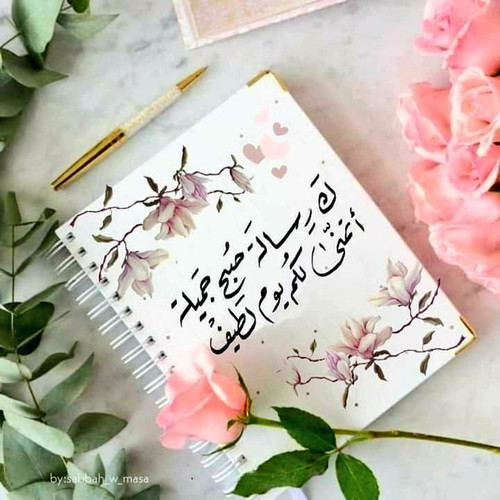 كَ رِسالة صُبح جَميلة
أتمنّىٰ لكُم يوم لَطيفْ
by:sabbah_w_masa